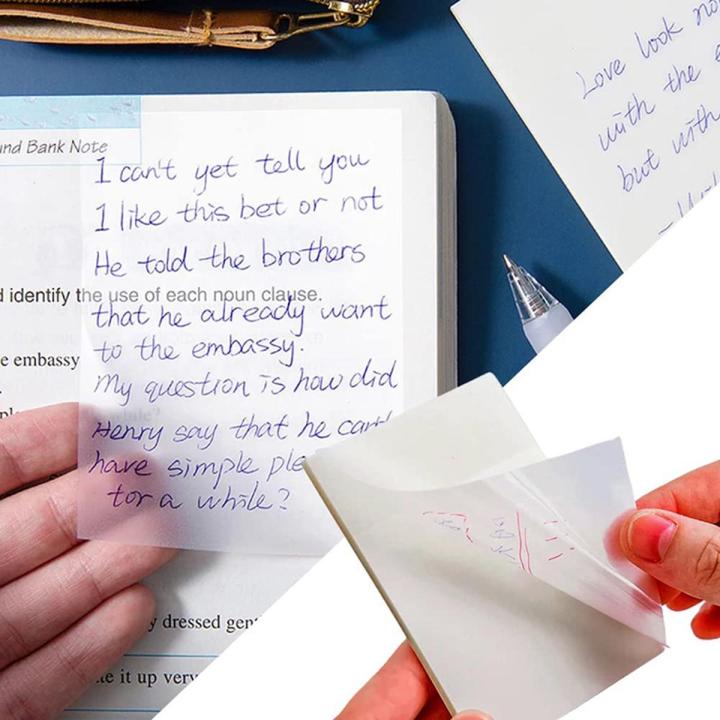 und Bank Note
1 can't yet tell you
1 like this bet or not
He told the brothers
d identify the use of each noun clause.
that he already want
to the embassy.
e embassy
My question is how did
Henry say that he can't
have simple ple
for a while?
y dressed gent
te it up very
Love look no
with the e
but with